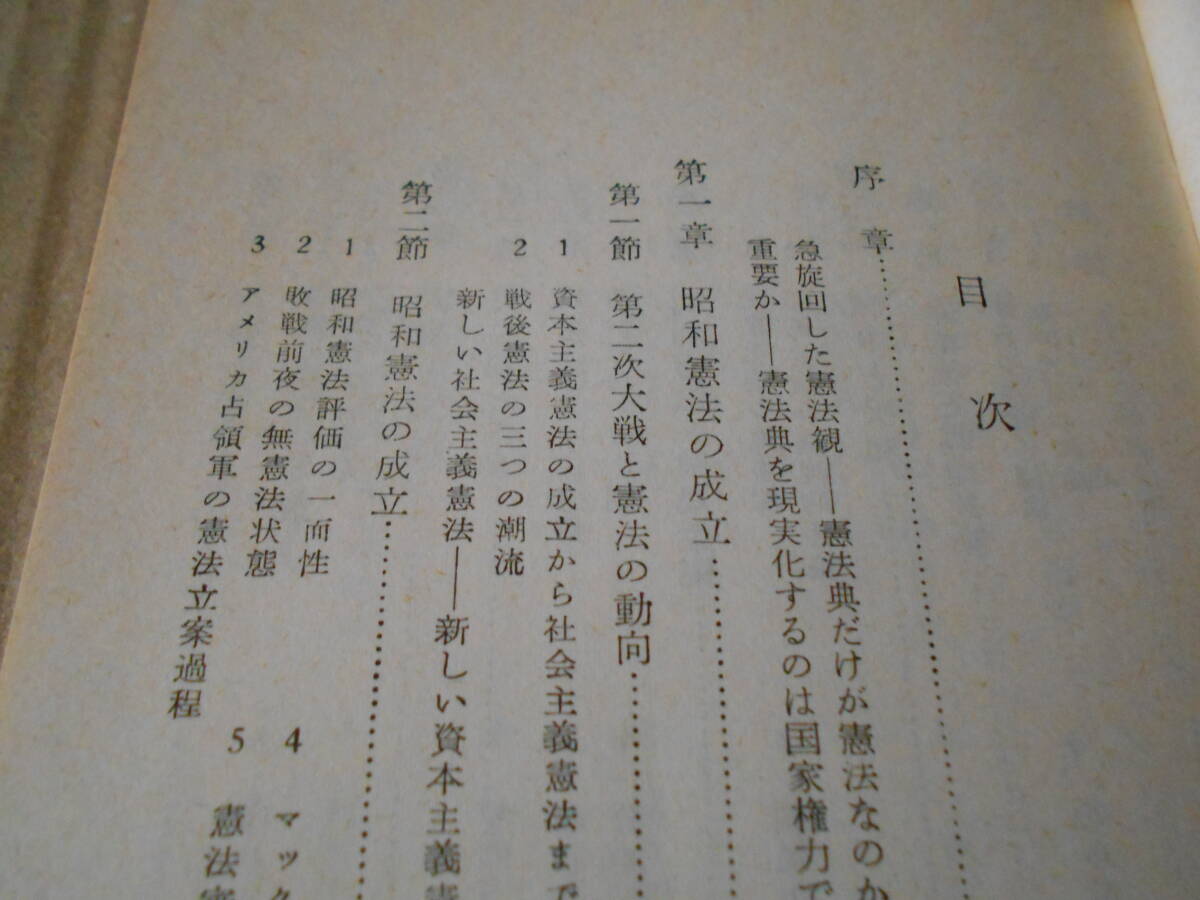 目次
序章……………………
急旋回した憲法観――憲法典だけが憲法なのか
重要か――憲法典を現実化するのは国家権力で
第一章 昭和憲法の成立……………………
第一節 第二次大戦と憲法の動向……………………
1 資本主義憲法の成立から社会主義憲法まで
2 戦後憲法の三つの潮流
新しい社会主義憲法――新しい資本主義憲
第二節 昭和憲法の成立……………………
1 昭和憲法評価の一面性
2 敗戦前夜の無憲法状態
3 アメリカ占領軍の憲法立案過程
4 マック
5 憲法